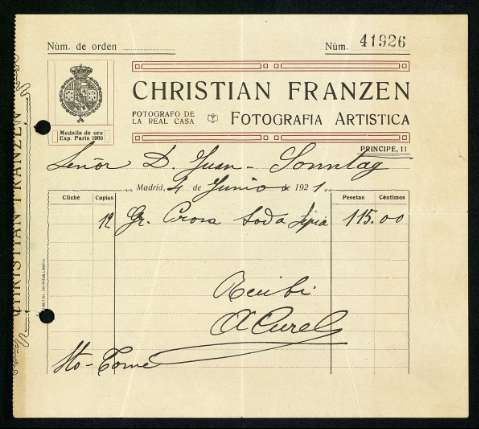 Núm. de orden
Núm. 41926
CHRISTIAN FRANZEN
FOTOGRAFO DE LA REAL CASA
FOTOGRAFIA ARTISTICA
Medalla de oro
Exp. París 1900
PRINCIPE, 11
Señor D. Juan - Sonntag
Madrid, 4 de Junio de 1921.
Cliché Copias Pesetas Céntimos
12 Gr. toda Sepia 115.00
Recibi
Sto-Tomé
CHRISTIAN FRANZEN